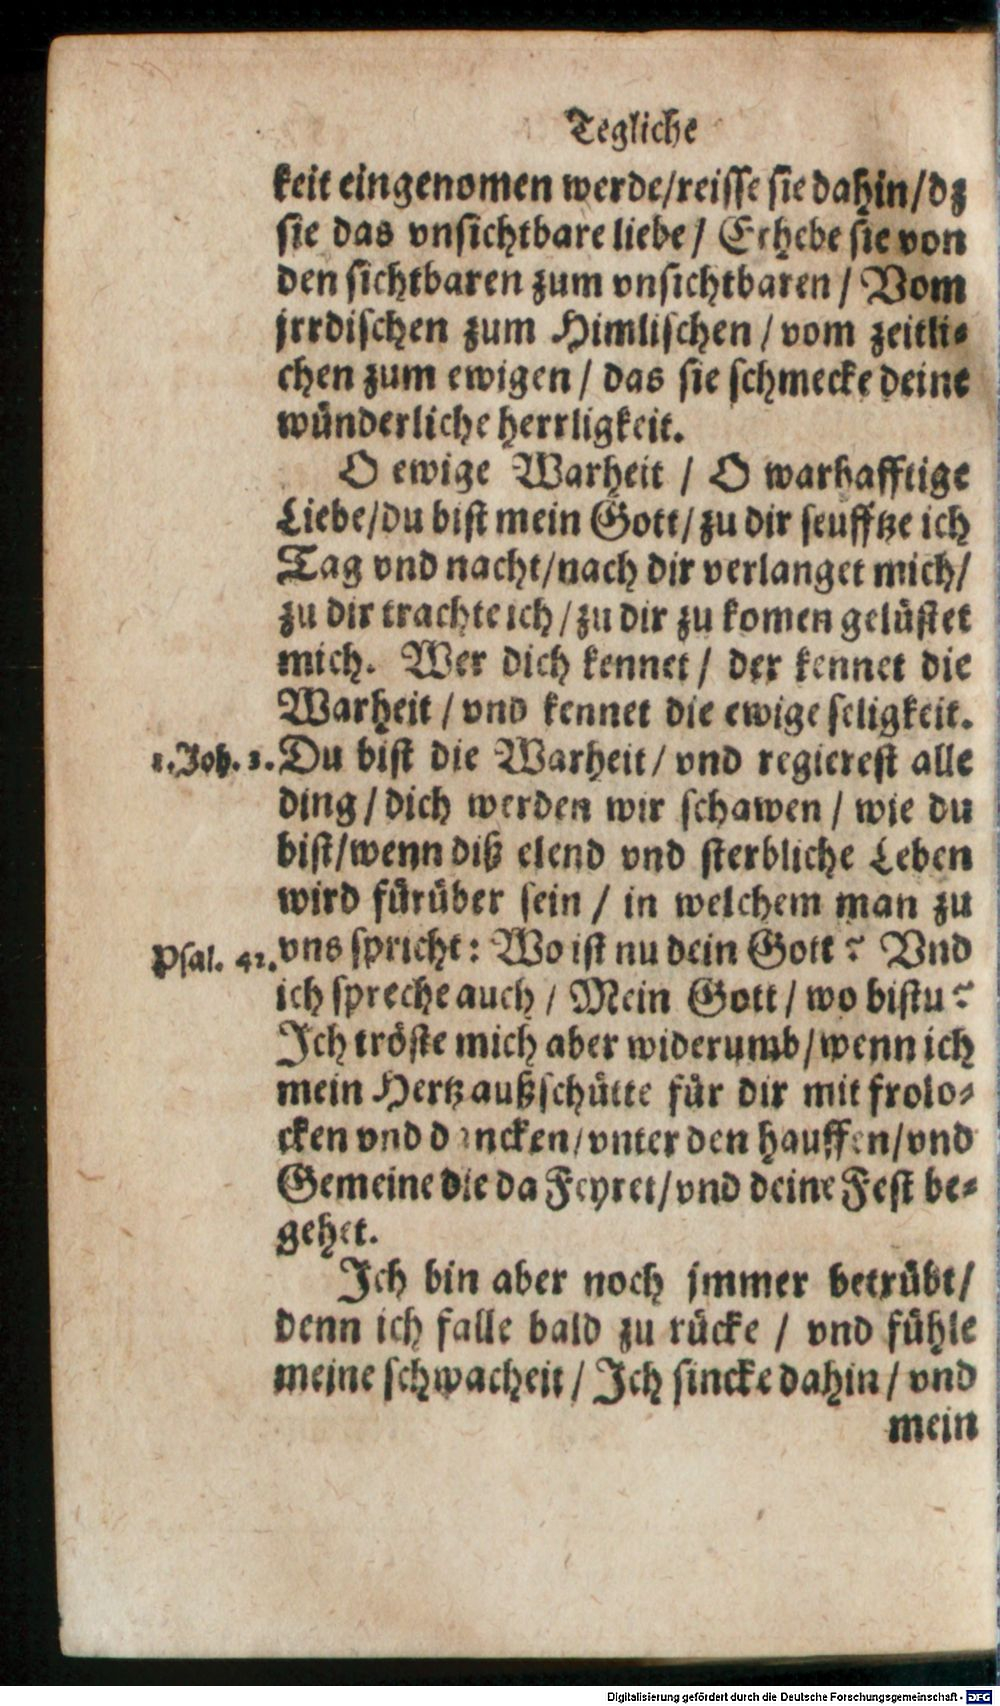 Tegliche
keit eingenomen werde/reisse sie dahin/dz
sie das vnsichtbare liebe/ Erhebe sie von
den sichtbaren zum vnsichtbaren/ Vom
jrrdischen zum Himlischen/vom zeitli-
chen zum ewigen/ das sie schmecke deine
wünderliche herrligkeit.
O ewige Warheit / O warhafftige
Liebe/du bist mein Gott/zu dir seufftze ich
Tag vnd nacht/nach dir verlanget mich/
zu dir trachte ich/zu dir zu komen gelüstet
mich. Wer dich kennet/ der kennet die
Warheit/vnd kennet die ewige seligkeit.
1.Joh. 3. Du bist die Warheit/ vnd regierest alle
ding/dich werden wir schawen/ wie du
bist/wenn diß elend vnd sterbliche Leben
wird fürüber sein/ in welchem man zu
Psal. 42. vns spricht: Wo ist nu dein Gott? Vnd
ich spreche auch/ Mein Gott/wo bistu?
Ich tröste mich aber widerumb/wenn ich
mein Hertz außschütte für dir mit frolo-
cken vnd dancken/vnter den hauffen/vnd
Gemeine die da Feyret/vnd deine Fest be-
gehet.
Ich bin aber noch jmmer betrübt/
denn ich falle bald zu rücke / vnd fühle
meine schwacheit/ Ich sincke dahin/vnd
mein
Digitalisierung gefördert durch die Deutsche Forschungsgemeinschaft - DFG